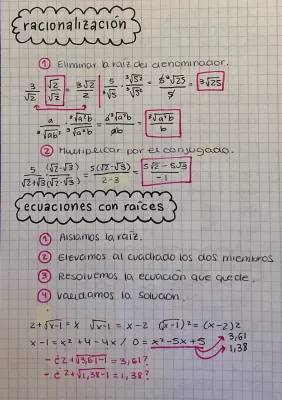 racionalización
① Eliminar la raíz del denominador.
3/√2 · √2/√2 = 3√2/2 | 5/³√5 · ³√5²/³√5² = 5³√25/5 = ³√25
a/³√ab² · ³√a²b/³√a²b = a³√a²b/ab = ³√a²b/b
② Multiplicar por el conjugado.
5/√2+√3 (√2-√3)/(√2-√3) = 5(√2-√3)/2-3 = 5√2-5√3/-1
ecuaciones con raíces
① Aislamos la raíz.
② Elevamos al cuadrado los dos miembros
③ Resolvemos la ecuación que quede.
④ Validamos la solución.
2+√x-1 = x √x-1 = x-2 (√x-1)² = (x-2)2
x-1 = x²+4-4x / 0 = x²-5x+5 3,61
1,38
- ¿2+√3,61-1 = 3,61?
- ¿2+√1,38-1 = 1,38?